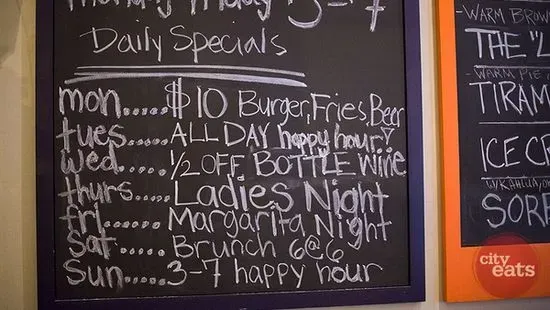 Monday Friday 3-7
Daily Specials
mon.....$10 Burger, Fries, Beer
tues.....ALL DAY happy hour!
wed.....1/2 OFF BOTTLE Wine
thurs....Ladies Night
fri.....Margarita Night
Sat.....Brunch 6@6
Sun.....3-7 happy hour
-WARM BROW
THE "L
-WARM PIE
TIRAM
ICE CR
W/KAHLUA,
SORB
city
eats